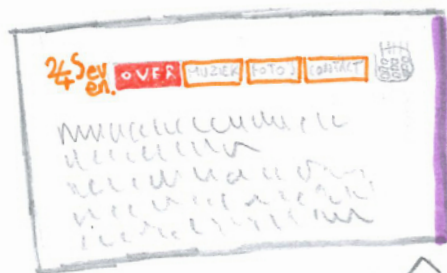 24Sev OVER MUZIEK FOTO'S CONTACT
en.